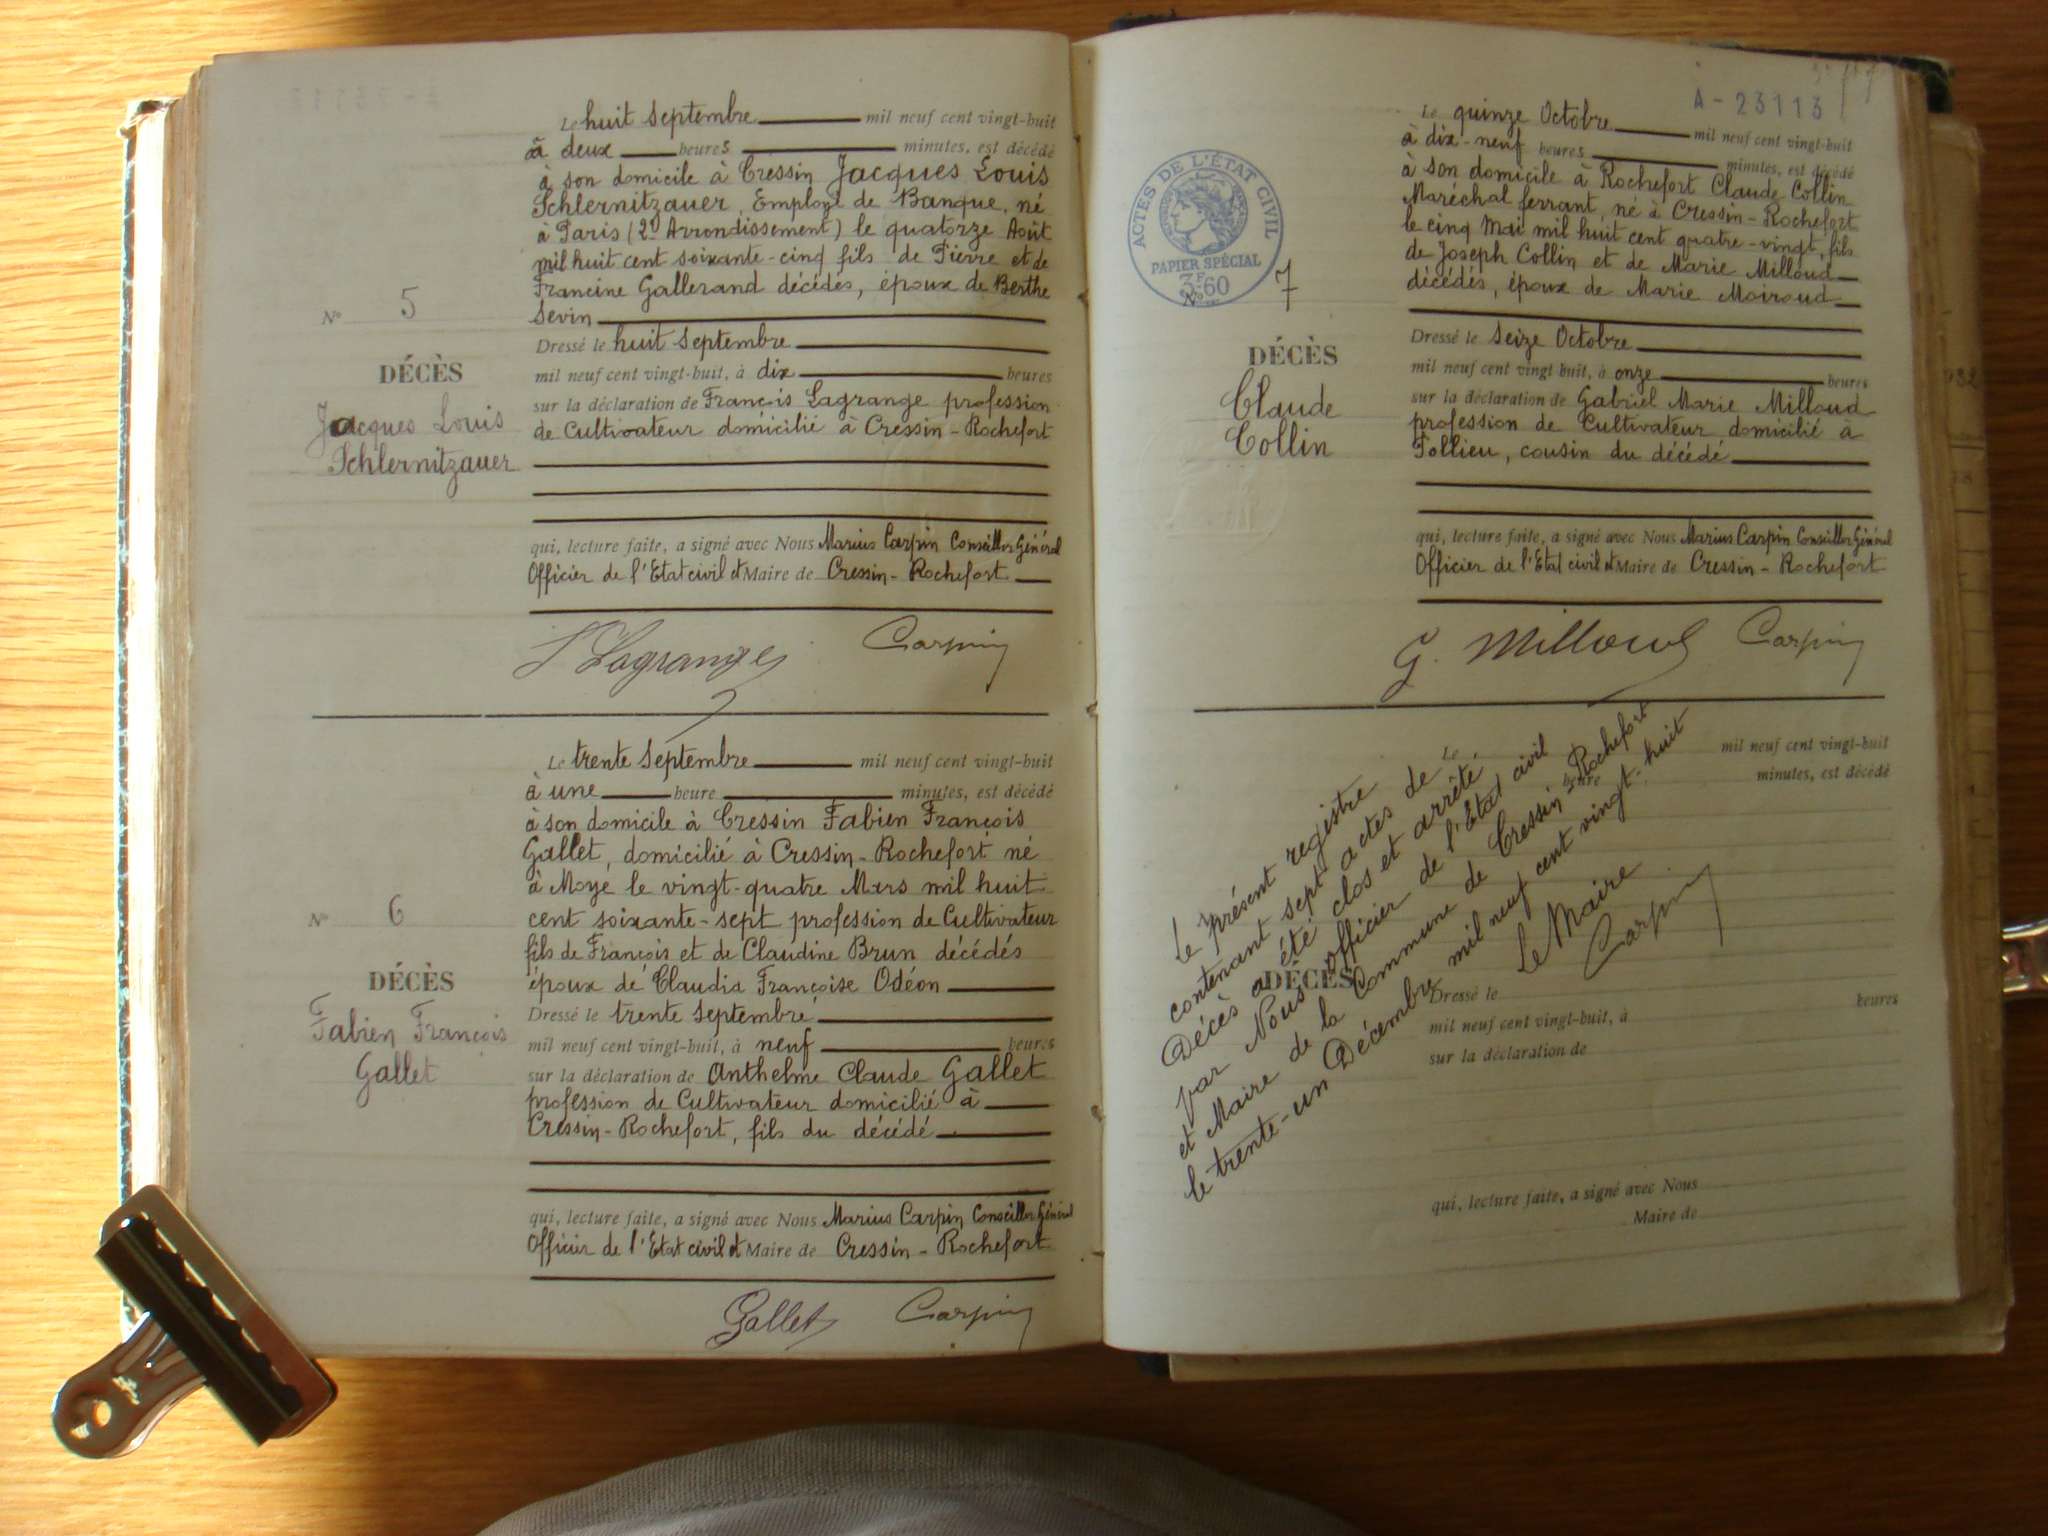 Le huit Septembre mil neuf cent vingt-huit
à deux heures minutes, est décédé
à son domicile à Cressin Jacques Louis
Schlernitzauer, Employé de Banque, né
à Paris (2e Arrondissement) le quatorze Août
mil huit cent soixante-cinq fils de Pierre et de
Francine Gallerand décédés, époux de Berthe
Sevin
N° 5
DÉCÈS
Jacques Louis
Schlernitzauer
Dressé le huit Septembre
mil neuf cent vingt-huit, à dix heures
sur la déclaration de François Lagrange profession
de Cultivateur domicilié à Cressin-Rochefort
qui, lecture faite, a signé avec Nous Marius Carpin Conseiller Général
Officier de l'Etat civil et Maire de Cressin-Rochefort
Lagrange Carpin
Le trente Septembre mil neuf cent vingt-huit
à une heure minutes, est décédé
à son domicile à Cressin Fabien François
Gallet, domicilié à Cressin-Rochefort né
à Moye le vingt-quatre Mars mil huit
cent soixante-sept profession de Cultivateur
fils de François et de Claudine Brun décédés
époux de Claudia Françoise Odéon
N° 6
DÉCÈS
Fabien François
Gallet
Dressé le trente Septembre
mil neuf cent vingt-huit, à neuf heures
sur la déclaration de Anthelme Claude Gallet
profession de Cultivateur domicilié à
Cressin-Rochefort, fils du décédé
qui, lecture faite, a signé avec Nous Marius Carpin Conseiller Général
Officier de l'Etat civil et Maire de Cressin-Rochefort
Gallet Carpin
A-23113
ACTES DE L'ÉTAT CIVIL
PAPIER SPÉCIAL
3F60
Le quinze Octobre mil neuf cent vingt-huit
à dix-neuf heures minutes, est décédé
à son domicile à Rochefort Claude Collin
Maréchal ferrant, né à Cressin-Rochefort
le cinq Mai mil huit cent quatre-vingt, fils
de Joseph Collin et de Marie Milloud
décédés, époux de Marie Moiroud
N° 7
DÉCÈS
Claude
Collin
Dressé le seize Octobre
mil neuf cent vingt-huit, à onze heures
sur la déclaration de Gabriel Marie Milloud
profession de Cultivateur domicilié à
Pollieu, cousin du décédé
qui, lecture faite, a signé avec Nous Marius Carpin Conseiller Général
Officier de l'Etat civil et Maire de Cressin-Rochefort
G. Milloud Carpin
Le mil neuf cent vingt-huit
heure minutes, est décédé
Le présent registre
contenant sept actes de
Décès a été clos et arrêté
par Nous officier de l'Etat civil
et Maire de la Commune de Cressin-Rochefort
le trente-un Décembre mil neuf cent vingt-huit
Le Maire
Carpin
DÉCÈS
Dressé le
mil neuf cent vingt-huit, à heures
sur la déclaration de
qui, lecture faite, a signé avec Nous
Maire de